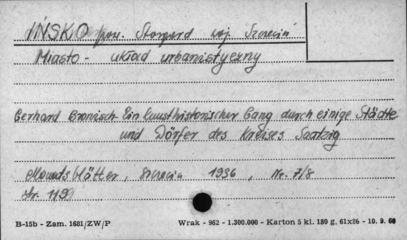 IŃSKO pow. Stargard woj. Szczecin
Miasto - układ urbanistyczny
Gerhard Bronisch Ein kunsthistorischer Gang durch einige Städte
und Dörfer des Kreises Saatzig
Monatsblätter, Szczecin 1936, Nr. 7/8
str. 119
B-15b - Zam. 1681/ZW/P
Wrak - 962 - 1.300.000 - Karton 5 kl. 180 g. 61x26 - 10. 9. 60